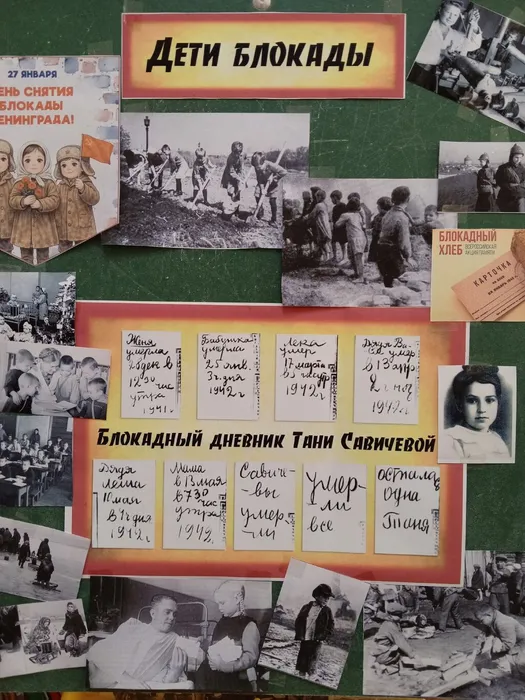 Дети блокады
27 ЯНВАРЯ
ЕНЬ СНЯТИЯ
БЛОКАДЫ
ЕНИНГРАДА!
БЛОКАДНЫЙ
ХЛЕБ
ВСЕРОССИЙСКАЯ
АКЦИЯ ПАМЯТИ
КАРТОЧКА
Женя
умерла
28 дек в
12 30 час
утра
1941 г
Бабушка
умерла
25 янв.
3 ч. дня
1942 г
Лека
умер
17 марта
в 5 час утр
1942 г
Дядя Ва-
ся умер
в 13 апр
2 ч ноч
1942 г
Блокадный дневник Тани Савичевой
Дядя
Леша
10 мая
в 4 ч дня
1942 г
Мама
в 13 мая
в 7 30
час
утра
1942 г
Савиче-
вы
умер-
ли
умер-
ли
все
осталась
одна
Таня